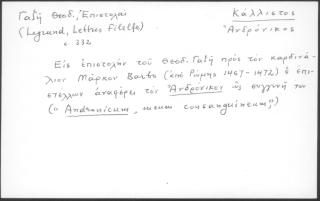 Γαζῆ Θεοδ., Ἐπιστολαὶ
(Legrand, Lettres Filelfe)
σ. 332
Κάλλιστος
Ἀνδρόνικος
Εἰς ἐπιστολὴν τοῦ Θεοδ. Γαζῆ πρὸς τὸν καρδινά-
λιον Μάρκον Barbo (ἀπὸ Ρώμης 1467-1472) ὁ ἐπι-
στέλλων ἀναφέρει τὸν Ἀνδρόνικον ὡς συγγενῆ του
(« Andronicum, meum consanguineum,»)